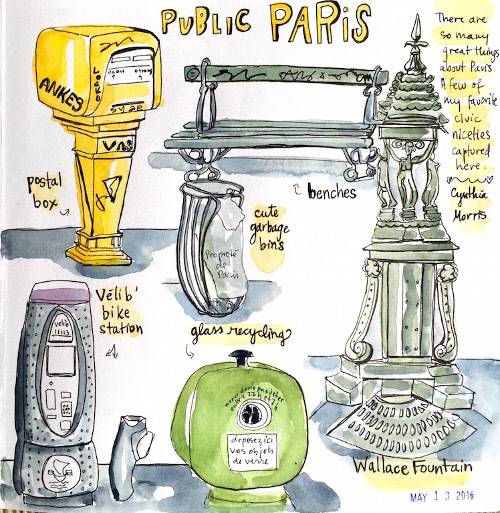 PUBLIC PARIS
There are
so many
great things
about Paris
A few of
my favorite
civic
niceties
captured
here.
Cynthia
Morris
ANKES
VNS
postal
box
benches
cute
garbage
bins
Propreté
de
Paris
Vélib'
bike
station
velib'
glass recycling
deposez ici
vos objets
de verre
Wallace Fountain
MAY 13 2016